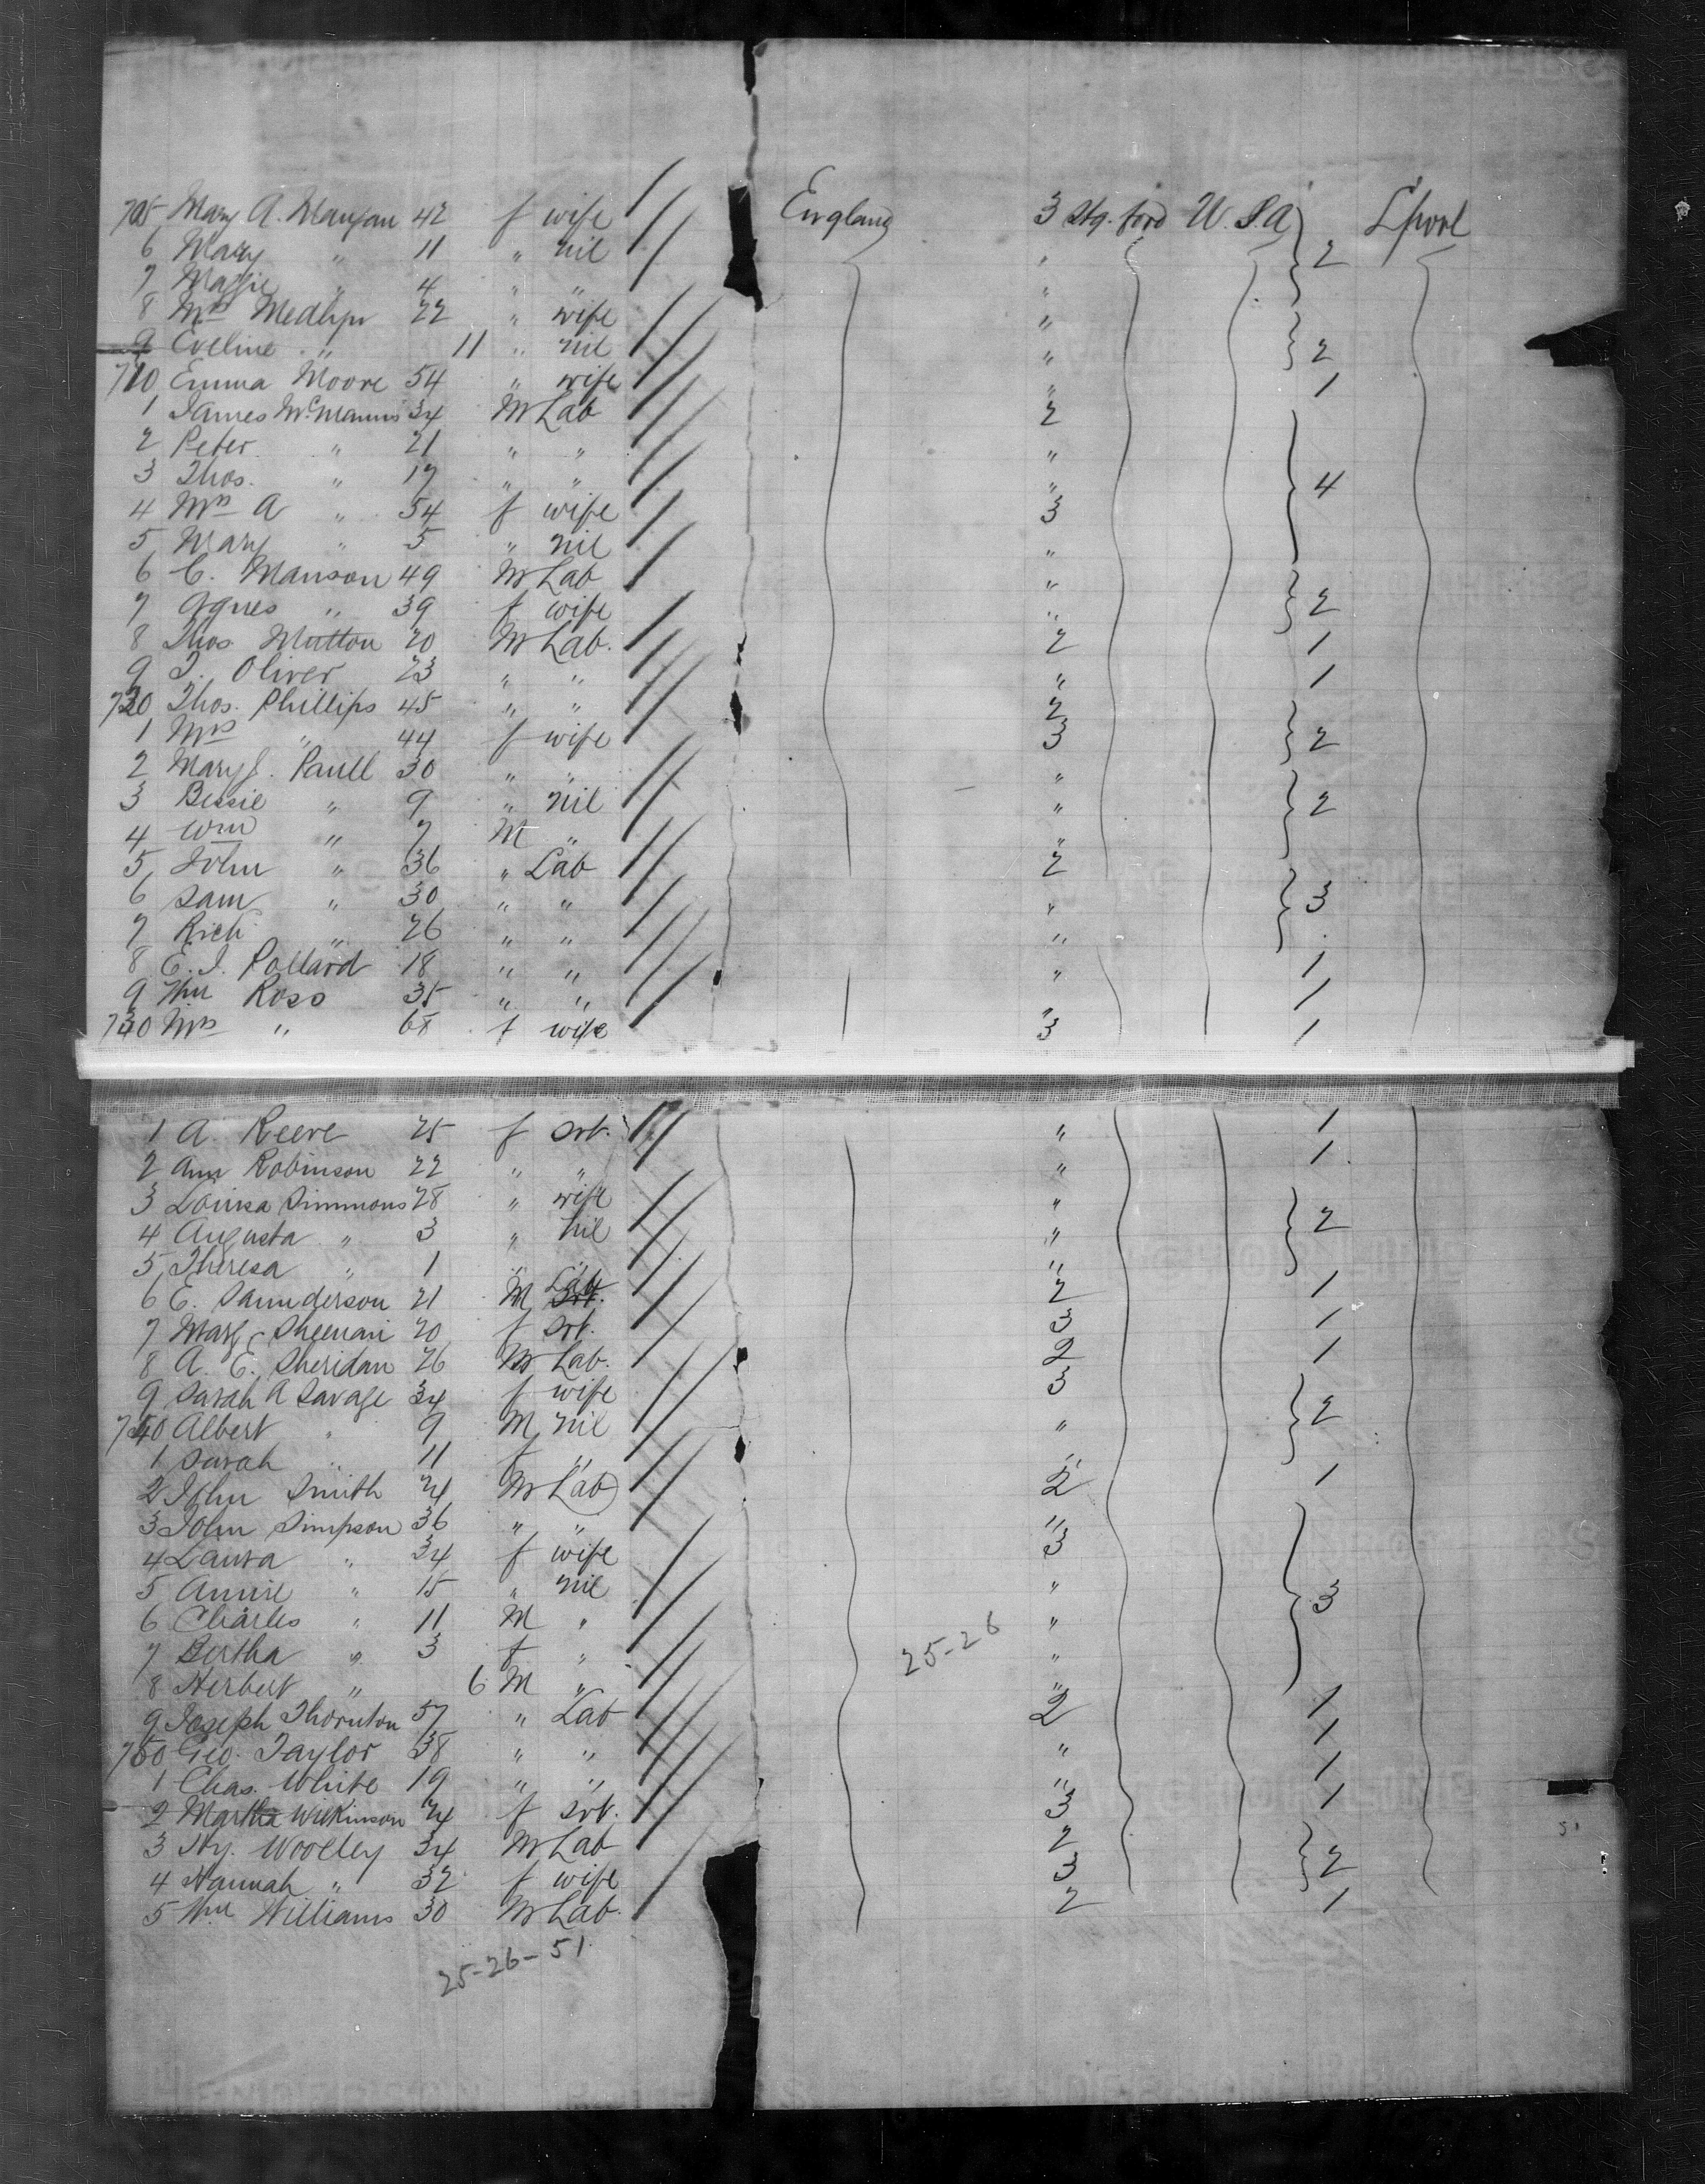 705 Mary A. Mangan 42 f wife England 3 Stg. ford U.S.A 2 L'pool
6 Mary " 11 " nil "
7 Maggie " 4 " " "
8 Mrs Medlyn 22 " wife " 2
9 Eveline " 11 " nil "
710 Emma Moore 54 " wife " 1
1 James McManus 34 M Lab 2
2 Peter " 21 " " " 4
3 Thos. " 17 " " "
4 Mrs A " 54 f wife 3
5 Mary " 5 " nil "
6 C. Manson 49 M Lab "
7 Agnes " 39 f wife " 2
8 Thos. Mutton 20 M Lab. 2 1
9 J. Oliver 23 " " " 1
720 Thos. Phillips 45 " " 2
1 Mrs " 44 f wife 3 2
2 Mary J. Paull 30 " " "
3 Bessie " 9 " nil " 2
4 Wm " 7 M " "
5 John " 36 " Lab 2
6 Sam " 30 " " " 3
7 Rich " 26 " " "
8 E. J. Pollard 18 " " " 1
9 Wm Ross 35 " " " 1
730 Mrs " 68 f wife 3 1
1 A. Reeve 25 f Svt. " 1
2 Ann Robinson 22 " " " 1
3 Louisa Simmons 28 " wife " 2
4 Augusta " 3 " nil "
5 Theresa " 1 " " "
6 E. Saunderson 21 M Svt. Lab 2 1
7 Mary Sheenan 20 f Svt. 3 1
8 A. E. Sheridan 26 M Lab. 2 1
9 Sarah A Savage 34 f wife 3 2
740 Albert " 9 M nil "
1 Sarah " 11 f " "
2 John Smith 24 M Lab 2 1
3 John Simpson 36 " " "
4 Laura " 34 f wife 3
5 Annie " 15 " nil " 3
6 Charles " 11 M " "
7 Bertha " 3 f " 25-26 "
8 Herbert " 6 M " "
9 Joseph Thornton 57 " Lab 2 1
750 Geo. Taylor 38 " " " 1
1 Chas. White 19 " " " 1
2 Martha Wilkinson 24 f Svt. 3 1
3 Hy. Woolley 34 M Lab 2 2
4 Hannah " 32 f wife 3
5 Wm Williams 30 M Lab. 2 1
25-26-51